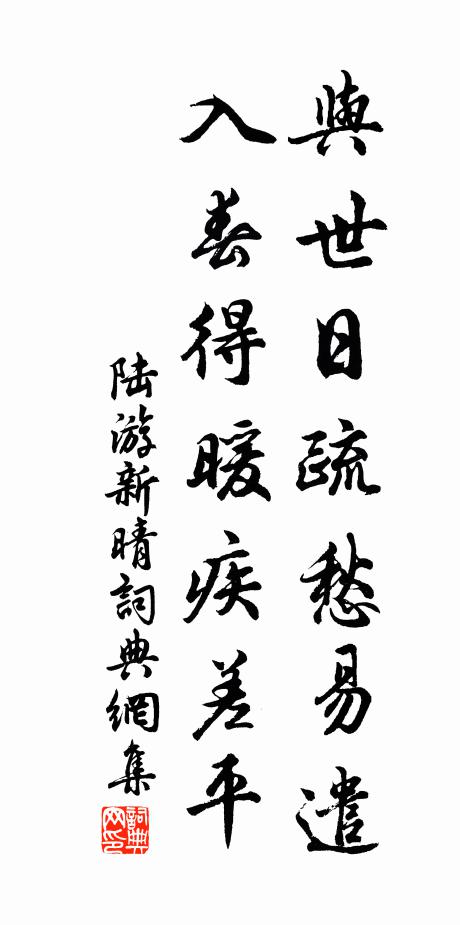 與世日疏愁易遣
入春得暖疾差平
陆游新晴詞典網集
詞典网印